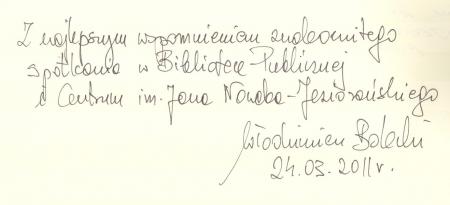 Z najlepszym wspomnieniem znakomitego
spotkania w Bibliotece Publicznej
i Centrum im. Jana Nowaka-Jeziorańskiego
Włodzimierz Bolecki
24.03.2011 r.